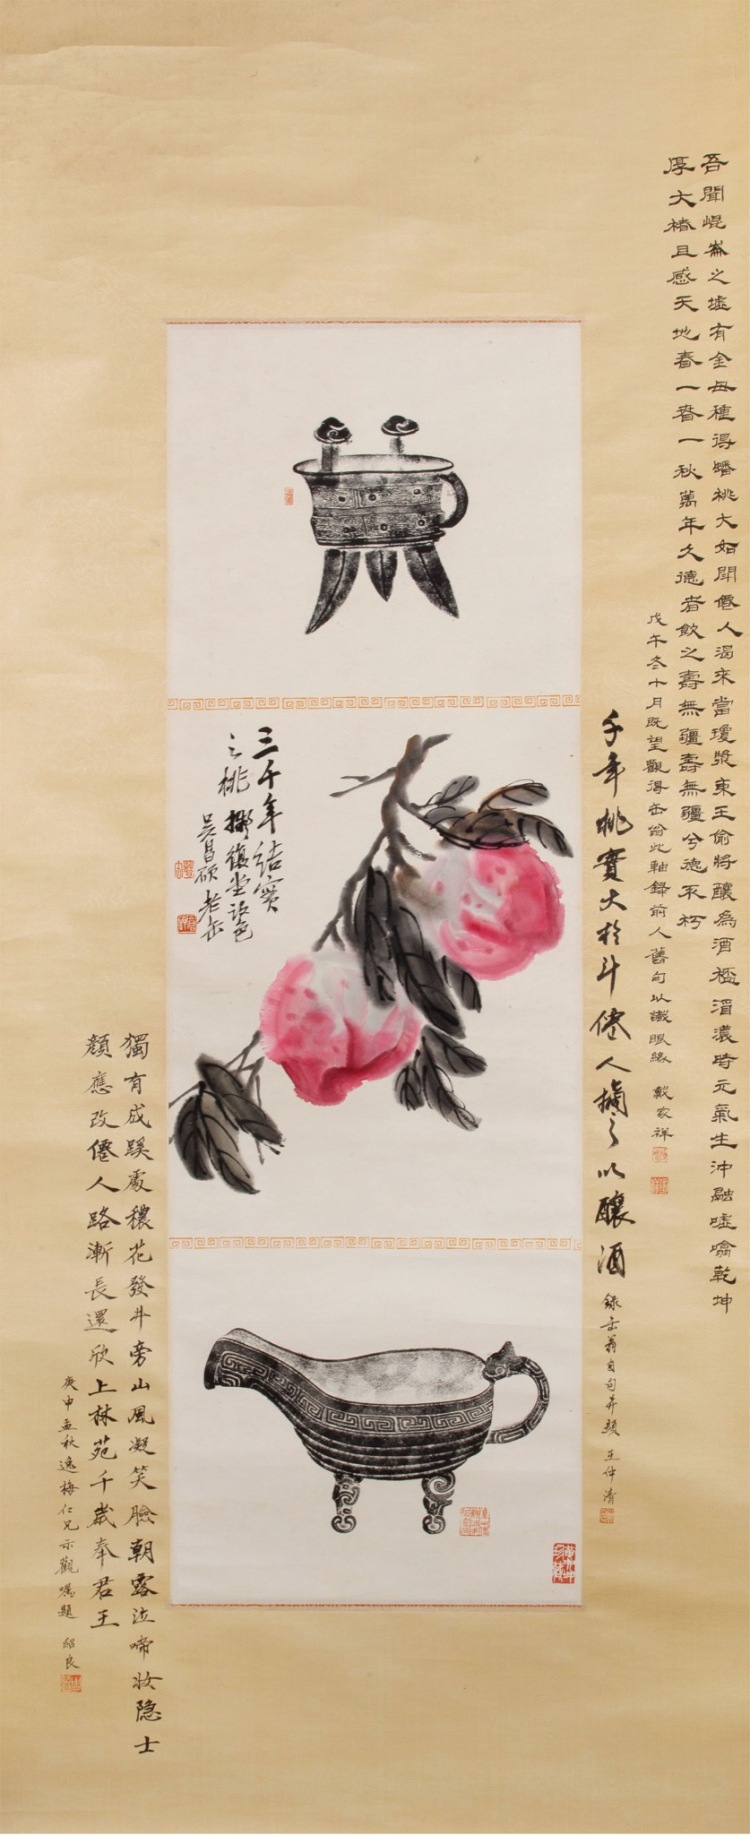 吾聞崐崙之墟有金母種得蟠桃大如僊人渴來當瓊漿東王偷將釀為酒湑濃時元氣生沖融噓噏乾坤
厚大椿且感天地春一春一秋萬年久德者飲之壽無疆壽無疆兮德不朽
戊午冬十月既望觀得缶翁此軸錄前人舊句以識眼緣 戴家祥
千年桃實大於斗僊人摘之以釀酒 錄缶翁自句并題 王仲清
三千年結實
之桃擬復堂設色
吳昌碩老缶
獨有成蹊處穠花發井旁山風凝笑臉朝露泣啼妝隱士
顏應改僊人路漸長還欣上林苑千歲奉君王
庚申孟秋逸梅仁兄示觀囑題 紹良